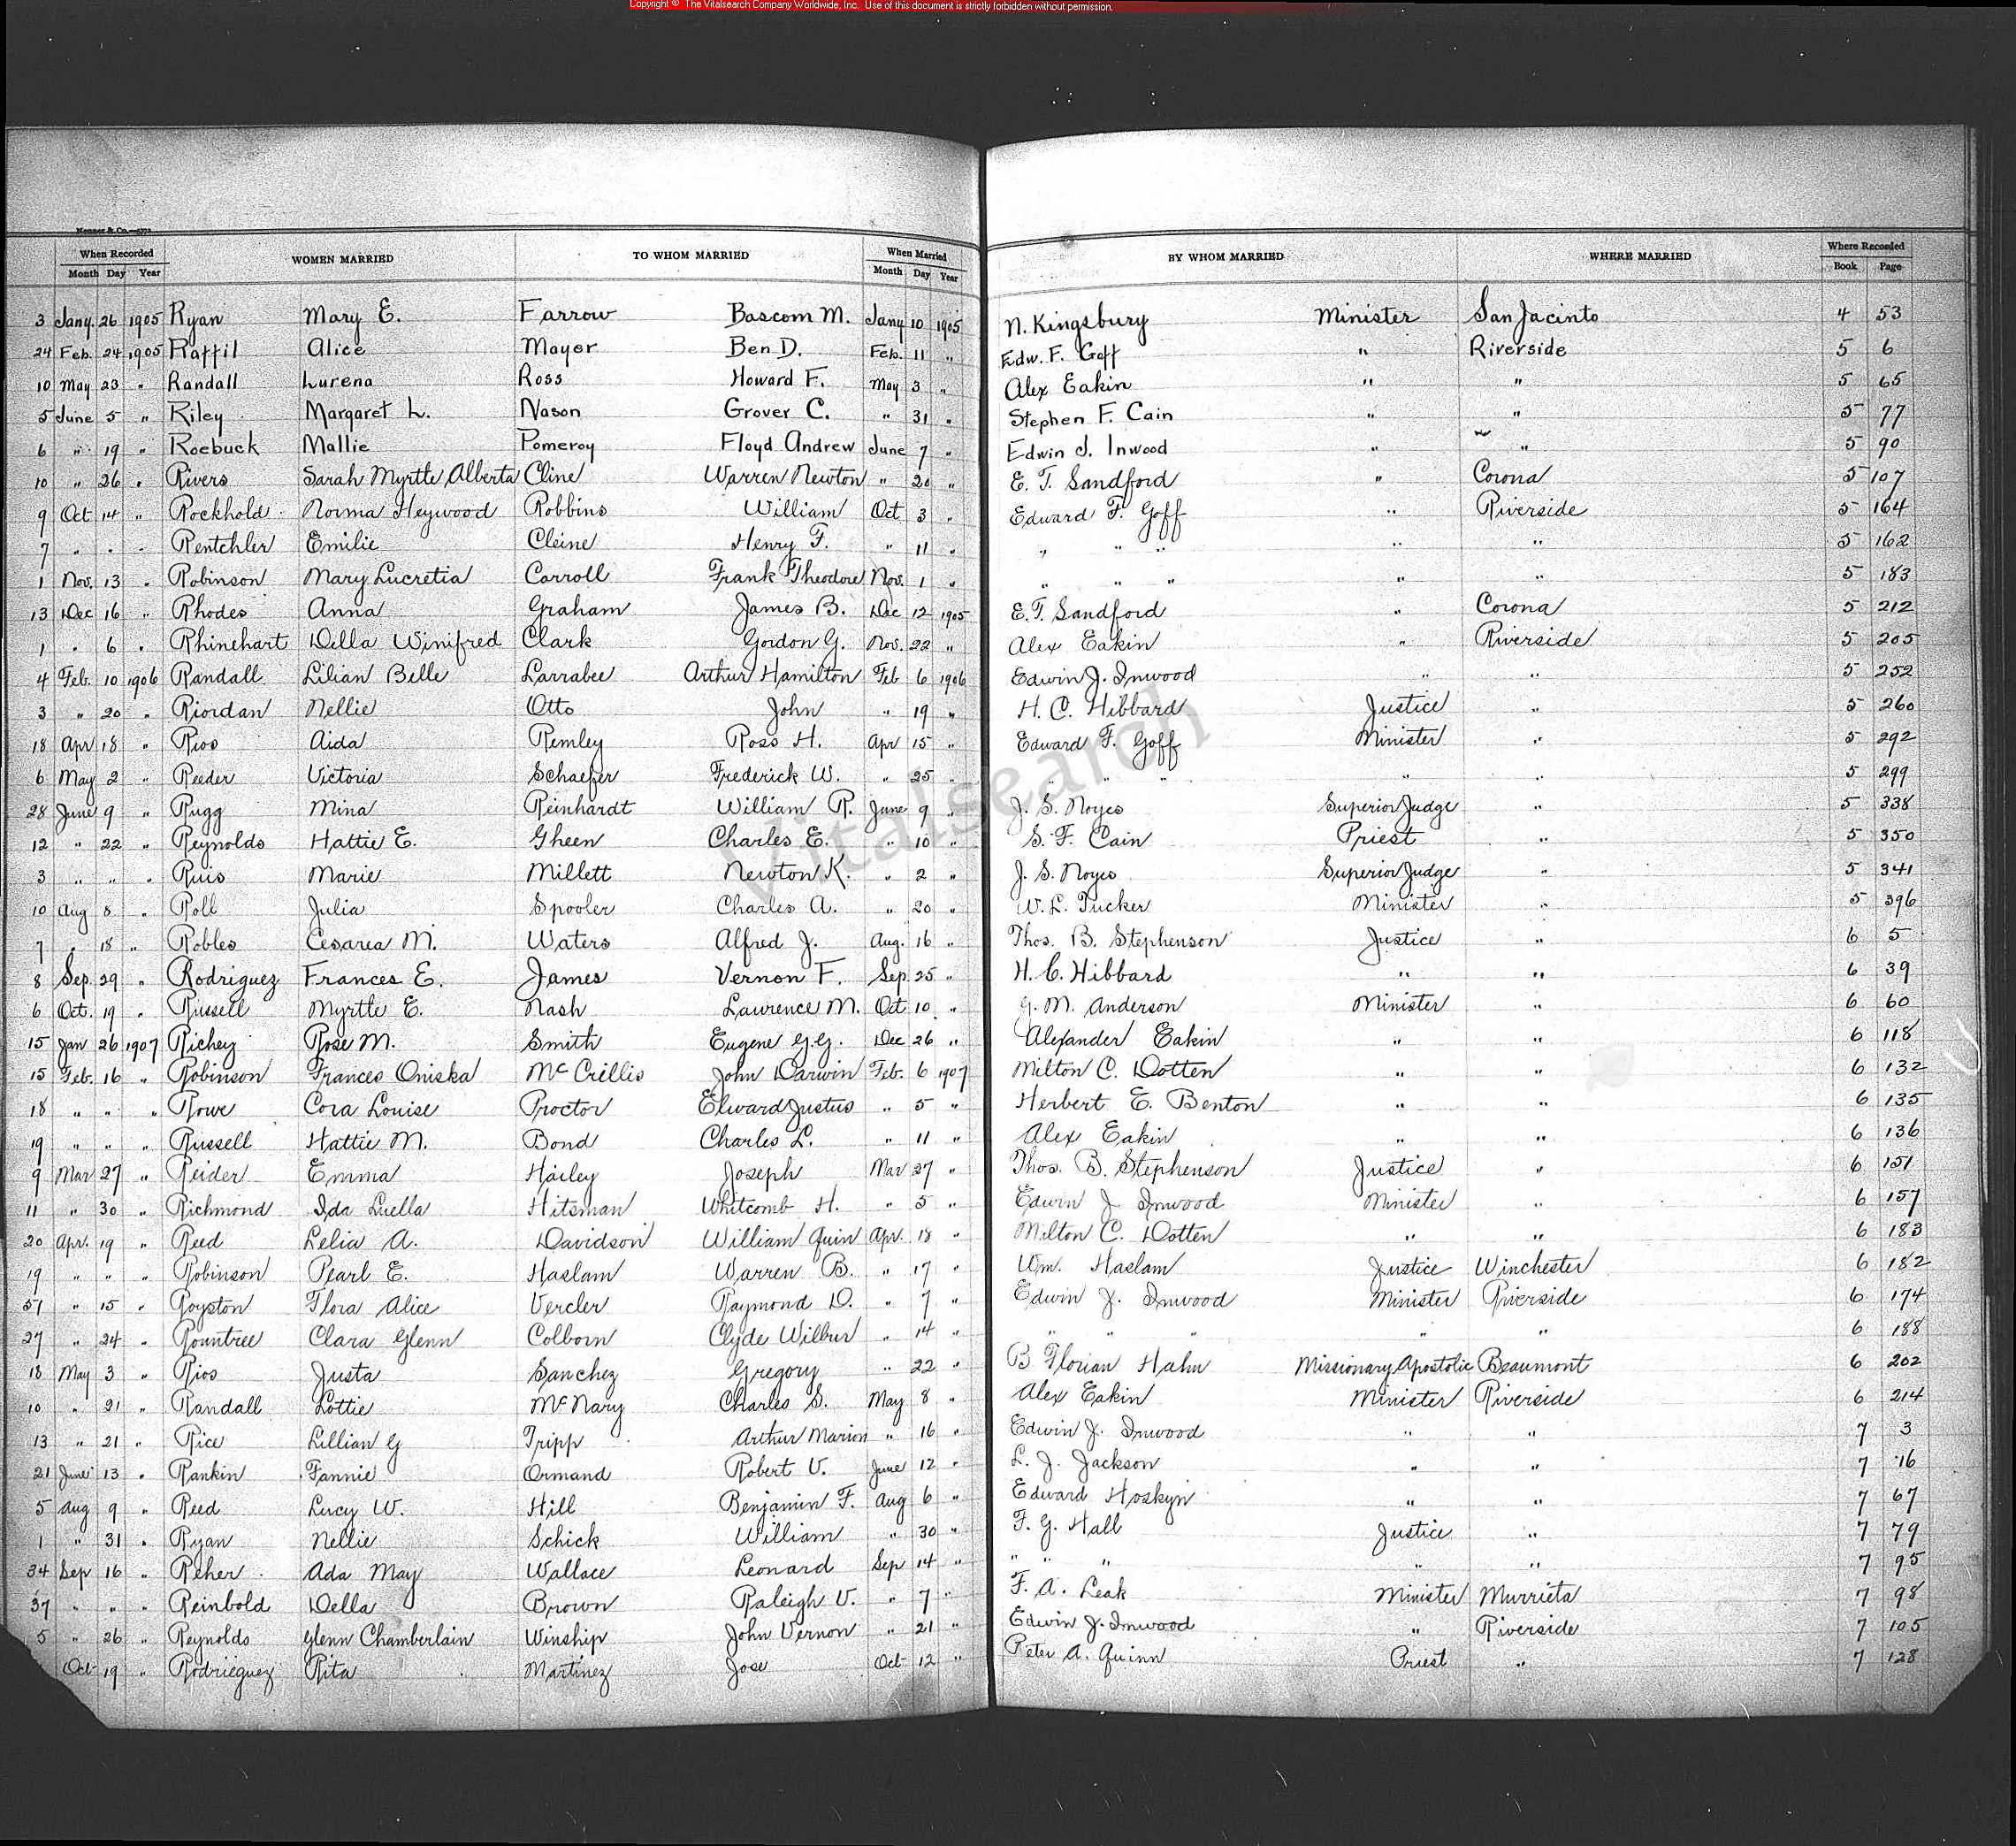 Copyright © The Vitalsearch Company Worldwide, Inc. Use of this document is strictly forbidden without permission.
When Recorded WOMEN MARRIED TO WHOM MARRIED When Married BY WHOM MARRIED WHERE MARRIED Where Recorded
Month Day Year Month Day Year Book Page
3 Jany. 26 1905 Ryan Mary E. Farrow Bascom M. Jany 10 1905 N. Kingsbury Minister San Jacinto 4 53
24 Feb. 24 1905 Raffil Alice Mayer Ben D. Feb. 11 " Edw. F. Goff " Riverside 5 6
10 May 23 " Randall Lurena Ross Howard F. May 3 " Alex Eakin " " 5 65
5 June 5 " Riley Margaret L. Nason Grover C. " 31 " Stephen F. Cain " " 5 77
6 " 19 " Roebuck Mallie Pomeroy Floyd Andrew June 7 " Edwin J. Inwood " " 5 90
10 " 26 " Rivers Sarah Myrtle Alberta Cline Warren Newton " 20 " E. T. Sandford " Corona 5 107
9 Oct 14 " Rockhold Norma Heywood Robbins William Oct 3 " Edward F. Goff " Riverside 5 164
7 " " " Rentchler Emilie Cleine Henry F. " 11 " " " " " " 5 162
1 Nov. 13 " Robinson Mary Lucretia Carroll Frank Theodore Nov. 1 " " " " " " 5 183
13 Dec 16 " Rhodes Anna Graham James B. Dec 12 1905 E. T. Sandford " Corona 5 212
1 " 6 " Rhinehart Della Winifred Clark Gordon G. Nov. 22 " Alex Eakin " Riverside 5 205
4 Feb. 10 1906 Randall Lilian Belle Larrabee Arthur Hamilton Feb 6 1906 Edwin J. Inwood " " 5 252
3 " 20 " Riordan Nellie Otto John " 19 " H. C. Hibbard Justice " 5 260
18 Apr 18 " Rios Aida Remley Ross H. Apr 15 " Edward F. Goff Minister " 5 292
6 May 2 " Reeder Victoria Schaefer Frederick W. " 25 " " " " " " 5 299
28 June 9 " Rugg Mina Reinhardt William R. June 9 " J. S. Noyes Superior Judge " 5 338
12 " 22 " Reynolds Hattie E. Gheen Charles E. " 10 " S. F. Cain Priest " 5 350
3 " " " Ruis Marie Millett Newton K. " 2 " J. S. Noyes Superior Judge " 5 341
10 Aug 8 " Roll Julia Spooler Charles A. " 20 " W. L. Tucker Minister " 5 396
7 " 18 " Robles Cesarea M. Waters Alfred J. Aug. 16 " Thos. B. Stephenson Justice " 6 5
8 Sep. 29 " Rodriguez Frances E. James Vernon F. Sep. 25 " H. C. Hibbard " " 6 39
6 Oct. 19 " Russell Myrtle E. Nash Lawrence M. Oct 10 " G. M. Anderson Minister " 6 60
15 Jan 26 1907 Richey Rose M. Smith Eugene G.G. Dec 26 " Alexander Eakin " " 6 118
15 Feb. 16 " Robinson Frances Oniska McCrillis John Darwin Feb. 6 1907 Milton C. Dotten " " 6 132
18 " " " Rowe Cora Louise Proctor Elward Justus " 5 " Herbert E. Benton " " 6 135
19 " " " Russell Hattie M. Bond Charles L. " 11 " Alex Eakin " " 6 136
9 Mar 27 " Reider Emma Hailey Joseph Mar 27 " Thos. B. Stephenson Justice " 6 151
11 " 30 " Richmond Ida Luella Hitsman Whitcomb H. " 5 " Edwin J. Inwood Minister " 6 157
20 Apr. 19 " Reed Lelia A. Davidson William Quin Apr. 18 " Milton C. Dotten " " 6 183
19 " " " Robinson Pearl E. Haslam Warren B. " 17 " Wm. Haslam Justice Winchester 6 182
51 " 15 " Royston Flora Alice Vercler Raymond D. " 7 " Edwin J. Inwood Minister Riverside 6 174
27 " 24 " Rountree Clara Glenn Colborn Clyde Wilbur " 14 " " " " " " 6 188
18 May 3 " Rios Justa Sanchez Gregory " 22 " B Florian Hahn Missionary Apostolic Beaumont 6 202
10 " 21 " Randall Lottie McNary Charles S. May 8 " Alex Eakin Minister Riverside 6 214
13 " 21 " Rice Lillian G Tripp Arthur Marion " 16 " Edwin J. Inwood " " 7 3
21 June 13 " Rankin Fannie Ormand Robert V. June 12 " L. J. Jackson " " 7 16
5 Aug 9 " Reed Lucy W. Hill Benjamin F. Aug 6 " Edward Hoskyn " " 7 67
1 " 31 " Ryan Nellie Schick William " 30 " F. G. Hall Justice " 7 79
34 Sep 16 " Reher Ada May Wallace Leonard Sep 14 " " " " " " 7 95
37 " " " Reinbold Della Brown Raleigh V. " 7 " F. A. Leak Minister Murrieta 7 98
5 " 26 " Reynolds Glenn Chamberlain Winship John Vernon " 21 " Edwin J. Inwood " Riverside 7 105
Oct 19 " Rodrieguez Rita Martinez Jose Oct 12 " Peter A. Quinn Priest " 7 128
Vitalsearch